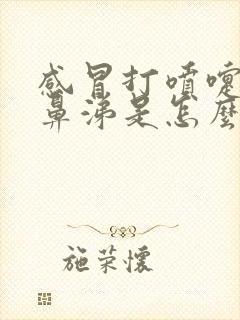 感冒打喷嚏
鼻涕是怎么
施荣怀